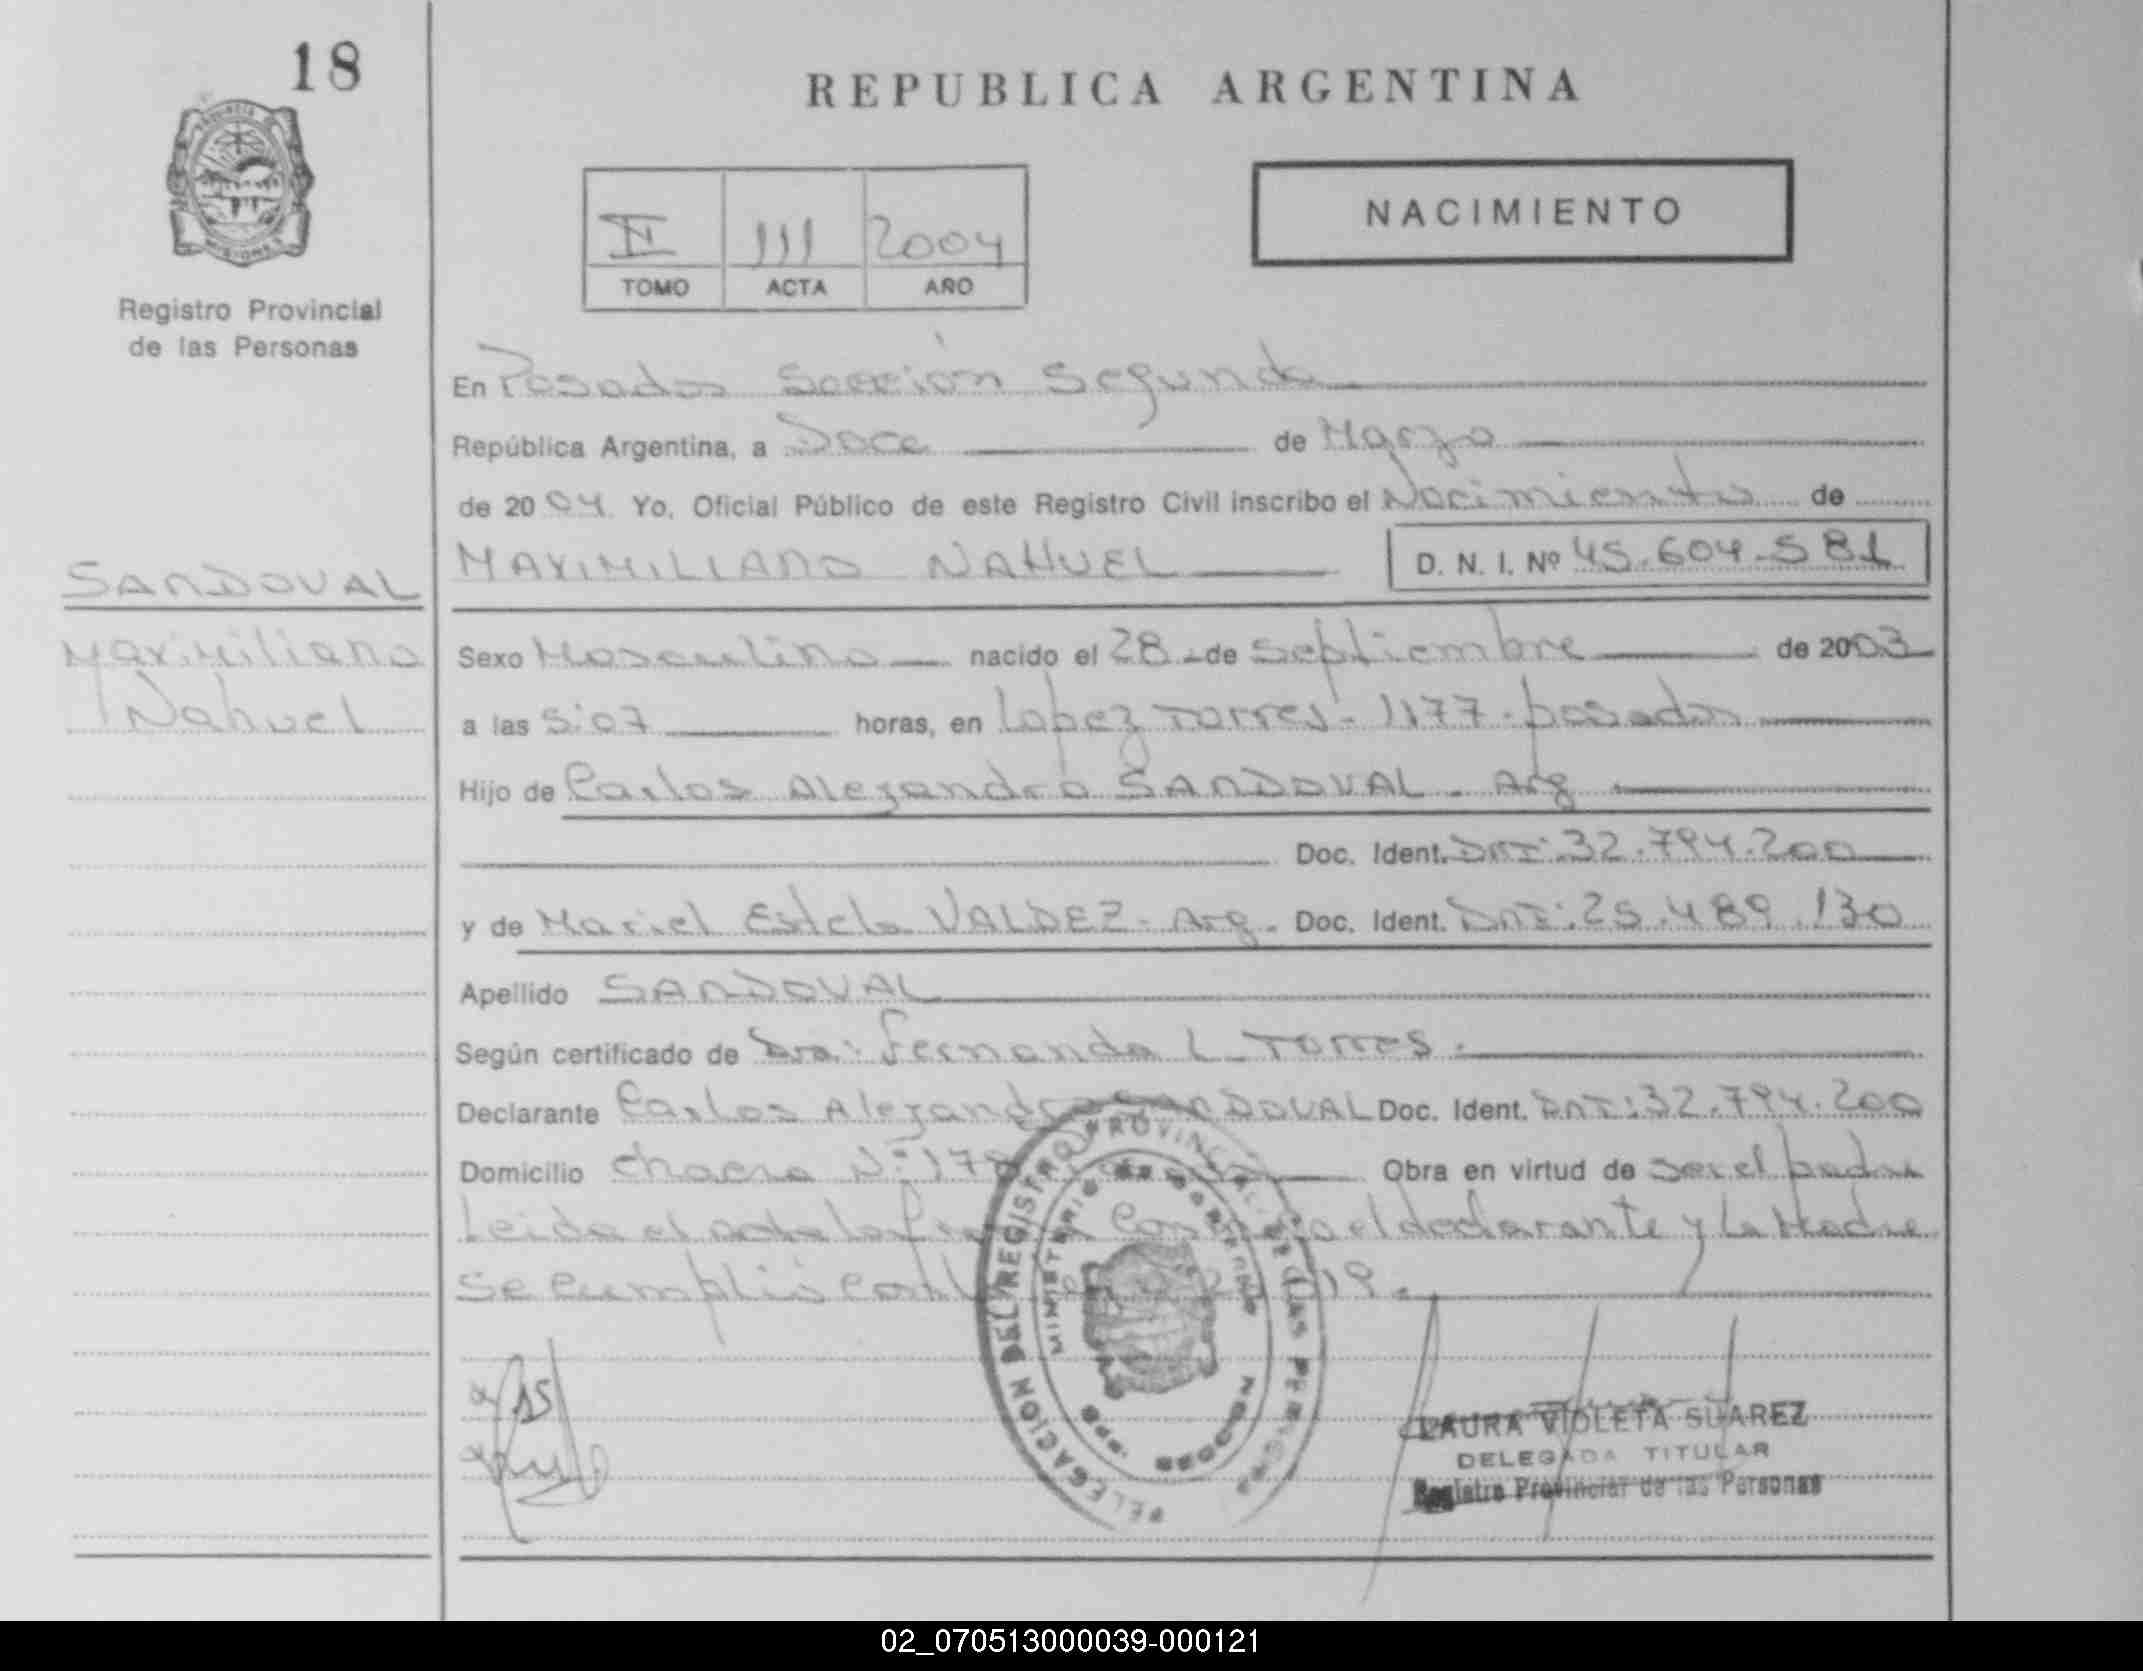 18
REPUBLICA ARGENTINA
NACIMIENTO
II 111 2004
TOMO ACTA AÑO
PROVINCIA DE
MISIONES
Registro Provincial
de las Personas
En Posadas Sección Segunda
República Argentina, a Doce de Marzo
de 2004 Yo, Oficial Público de este Registro Civil inscribo el Nacimiento de
SANDOVAL
MAXIMILIANO NAHUEL D. N. I. Nº 45.604.581
Maximiliano
Nahuel
Sexo Masculino nacido el 28 de Septiembre de 2003
a las 5:07 horas, en Lopez Torres - 1177 - posadas
Hijo de Carlos Alejandro SANDOVAL - Arg
Doc. Ident. DNI: 32.794.200
y de Mariel Estela VALDEZ - Arg. Doc. Ident. DNI: 25.489.130
Apellido SANDOVAL
Según certificado de Dra: Fernanda L. Torres.
Declarante Carlos Alejandro SANDOVAL Doc. Ident. DNI: 32.794.200
Domicilio chacra Nº 178 Obra en virtud de ser el padre
Leida el acta la el declarante y La Madre
Se cumplió con
DELEGACION DEL REGISTRO PROVINCIAL DE LAS PERSONAS
MINISTERIO DE GOBIERNO
MISIONES
LAURA VIOLETA SUAREZ
DELEGADA TITULAR
Registro Provincial de las Personas
02_070513000039-000121